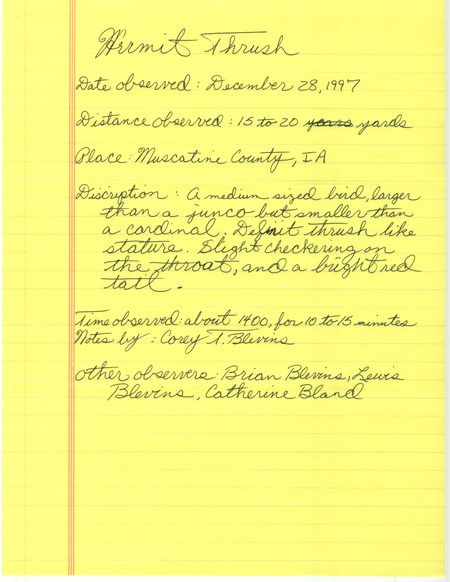 Hermit Thrush
Date observed: December 28, 1997
Distance observed: 15 to 20 years yards
Place: Muscatine County, IA
Discription: A medium sized bird, larger
than a junco but smaller than
a cardinal. Definit thrush like
stature. Slight checkering on
the throat, and a bright red
tail.
Time observed: about 1400, for 10 to 15 minutes
Notes by: Corey T. Blevins
other observers: Brian Blevins, Lewis
Blevins, Catherine Bland